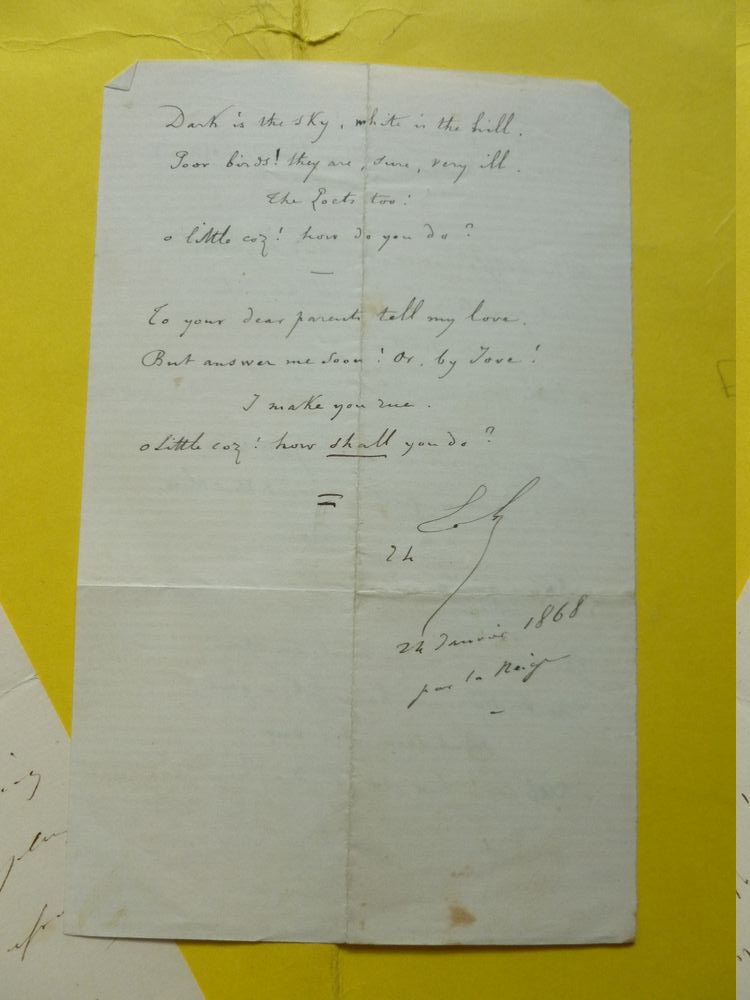 Dark is the sky, white is the hill.
Poor birds! they are, sure, very ill.
The Poets too!
o little coz! how do you do?
To your dear parents tell my love.
But answer me soon! Or, by Jove!
I make you rue.
o Little coz! how shall you do?
24
24 Janvier 1868
par la Neige